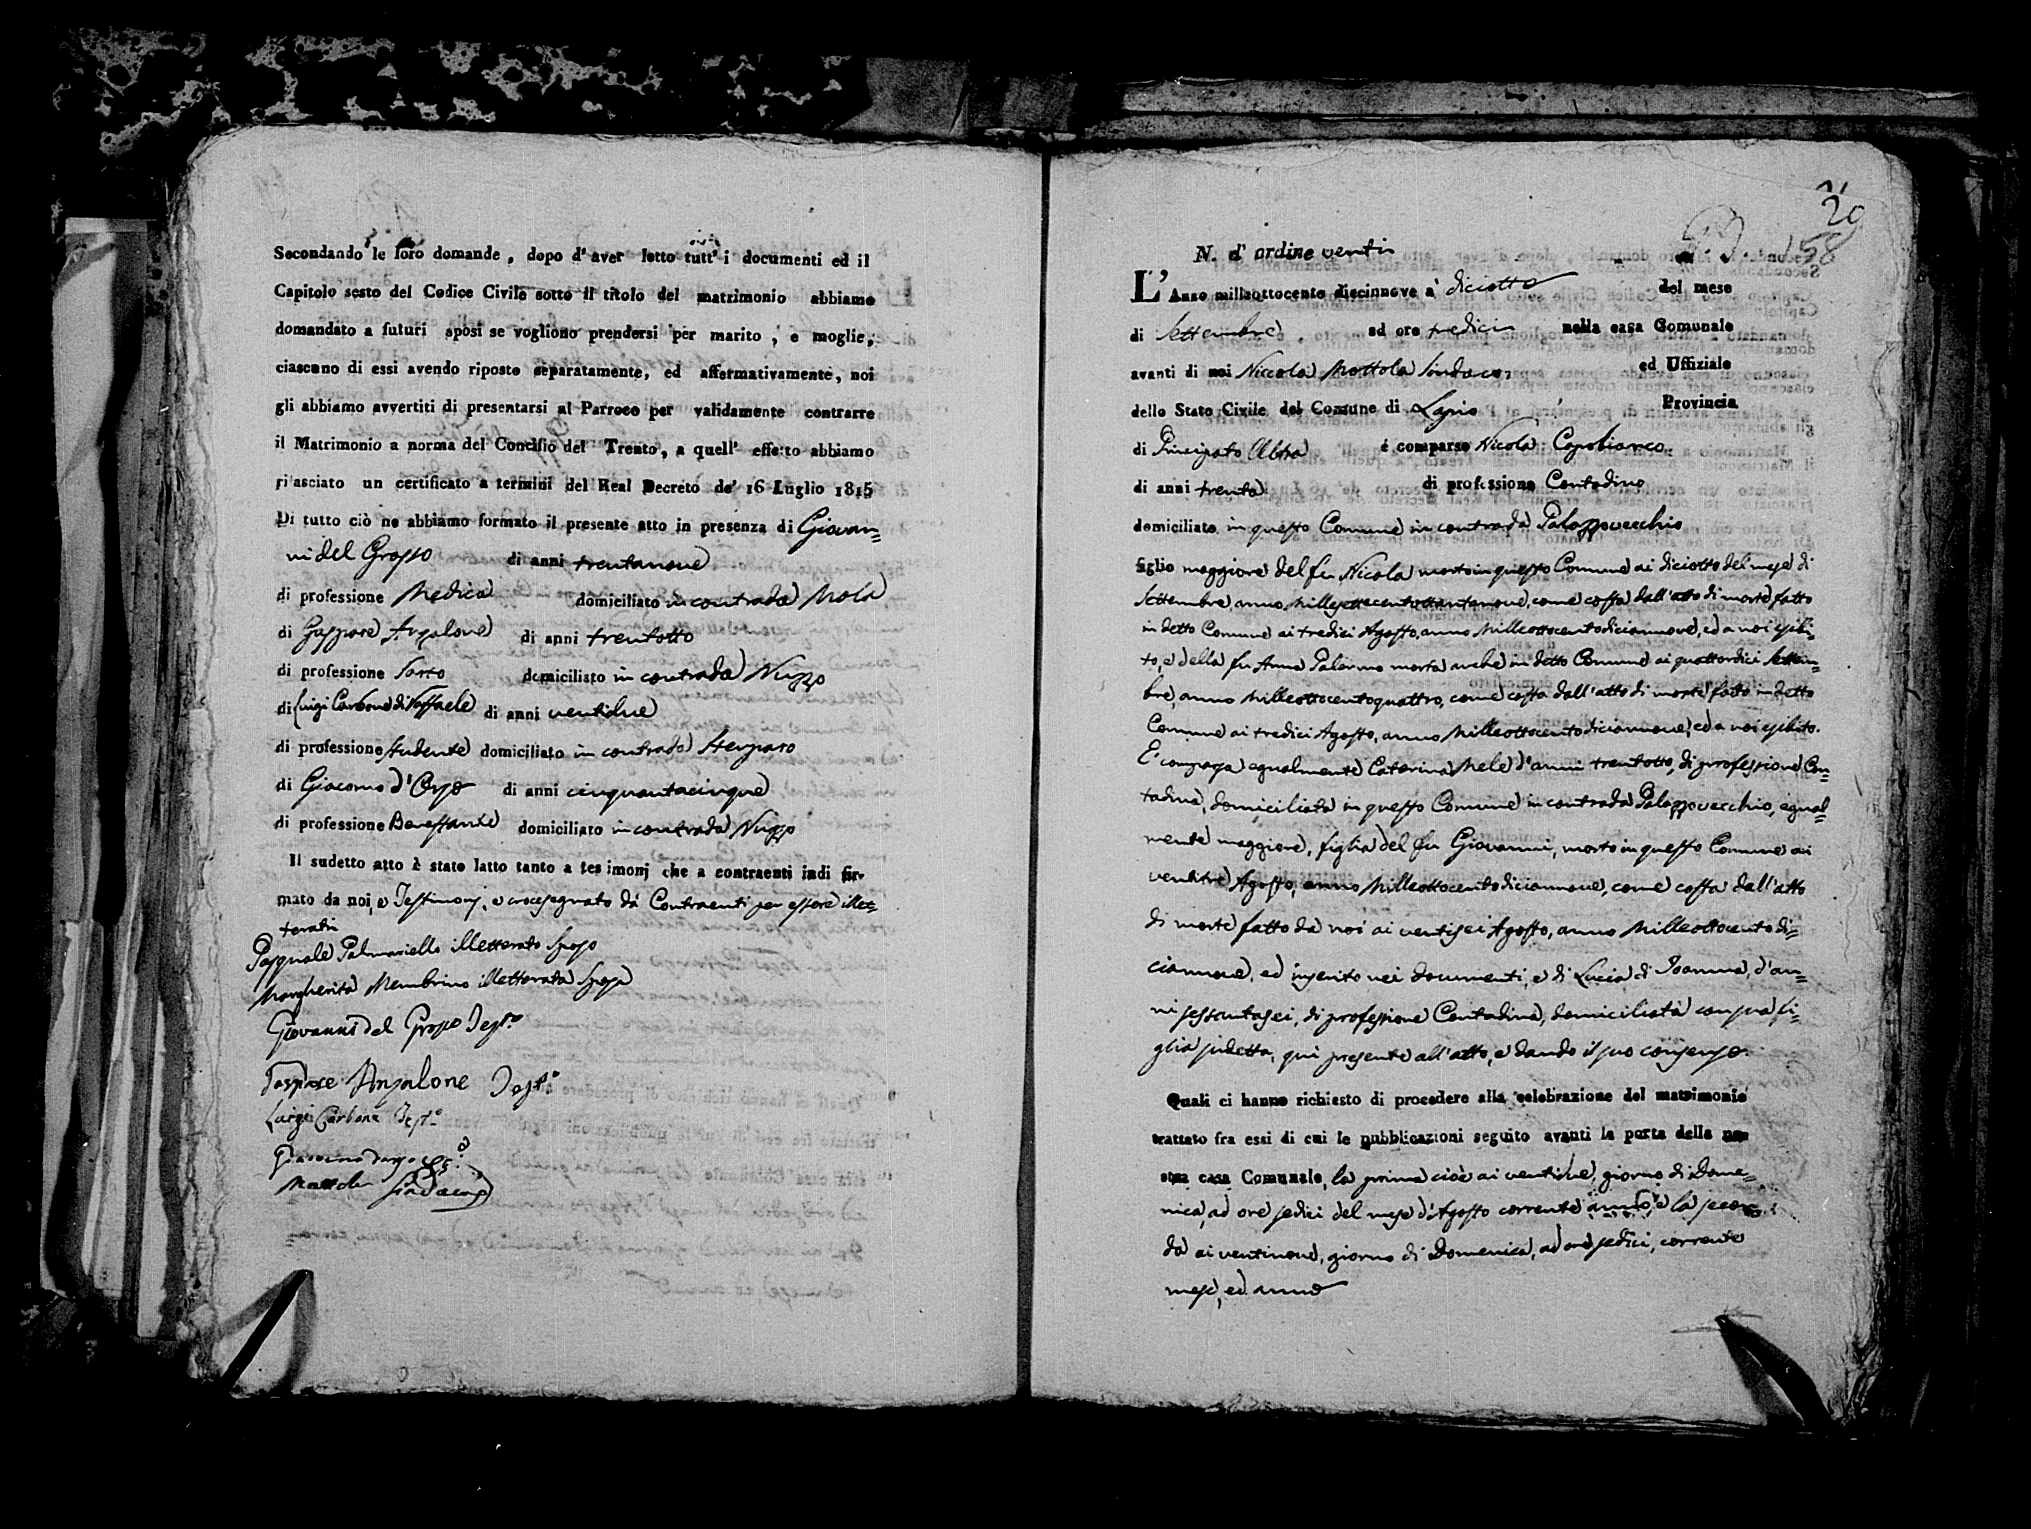 Secondando le loro domande, dopo d'aver letto tutt' i documenti ed il
Capitolo sesto del Codice Civile sotto il titolo del matrimonio abbiamo
domandato a futuri sposi se vogliono prendersi per marito, e moglie,
ciascuno di essi avendo riposto separatamente, ed affermativamente, noi
gli abbiamo avvertiti di presentarsi al Parroco per validamente contrarre
il Matrimonio a norma del Concilio del Trento, a quell' effetto abbiamo
rilasciato un certificato a termini del Real Decreto de' 16 Luglio 1815
Di tutto ciò ne abbiamo formato il presente atto in presenza di Giovan=
ni del Grosso di anni trentanove
di professione Medico domiciliato in contrada Mola
di Gaspare Anzalone di anni trentotto
di professione Sarto domiciliato in contrada Nuzzo
di Luigi Carbone di Raffaele di anni ventidue
di professione studente domiciliato in contrada
di Giacomo d'Orso di anni cinquantacinque
di professione Benestante domiciliato in contrada Nuzzo
Il sudetto atto è stato latto tanto a testimonj che a contraenti indi fir-
mato da noi, e Testimonj, e crocesegnato da Contraenti per essere illet=
terati
Pasquale Palmariello illetterato Sposo
Margherita Membrino illetterata Sposa
Giovanni del Grosso Test.º
Gaspare Anzalone Test.º
Luigi Carbone Test.º
Giacomo d'orso
Mottola Sindaco
20
58
N. d' ordine venti
L' Anno milleottocento diecinnove a' diciotto del mese
di Settembre ad ore tredici nella casa Comunale
avanti di noi Niccola Mottola Sindaco, ed Uffiziale
dello Stato Civile del Comune di Lapio Provincia
di Principato Ultra è comparso Nicola Capobianco
di anni trenta di professione Contadino
domiciliato in questo Comune in contrada Palazzovecchio
figlio maggiore del fu Nicola morto in questo Comune ai diciotto del mese di
Settembre, anno Millesettecentottantanove, come costa dall'atto di morte fatto
in detto Comune ai tredici Agosto, anno Milleottocentodiciannove, ed a noi esibi=
to, e della fu Anna Palermo morta anche in detto Comune ai quattordici Settem=
bre, anno Milleottocentoquattro, come costa dall'atto di morte fatto in detto
Comune ai tredici Agosto, anno Milleottocentodiciannove, ed a noi esibito.
E' comparsa egualmente Caterina Mele d'anni trentotto, di professione Con=
tadina, domiciliata in questo Comune in contrada Palazzovecchio, egual=
mente maggiore, figlia del fu Giovanni, morto in questo Comune ai
ventitre Agosto, anno Milleottocentodiciannove, come costa dall'atto
di morte fatto da noi ai ventisei Agosto, anno Milleottocentodi=
ciannove, ed inserito nei documenti, e di Lucia di Joanna, d'an=
ni sessantasei, di professione Contadina, domiciliata con sua fi=
glia sudetta, qui presente all'atto, e dando il suo consenso
Quali ci hanno richiesto di procedere alla celebrazione del matrimonio
trattato fra essi di cui le pubblicazioni seguito avanti la porta della nos
stra casa Comunale, la prima cioè ai ventidue, giorno di Dome=
nica, ad ore sedici del mese d'Agosto corrente anno, e la secon=
da ai ventinove, giorno di Domenica, ad ore sedici, corrente
mese, ed anno